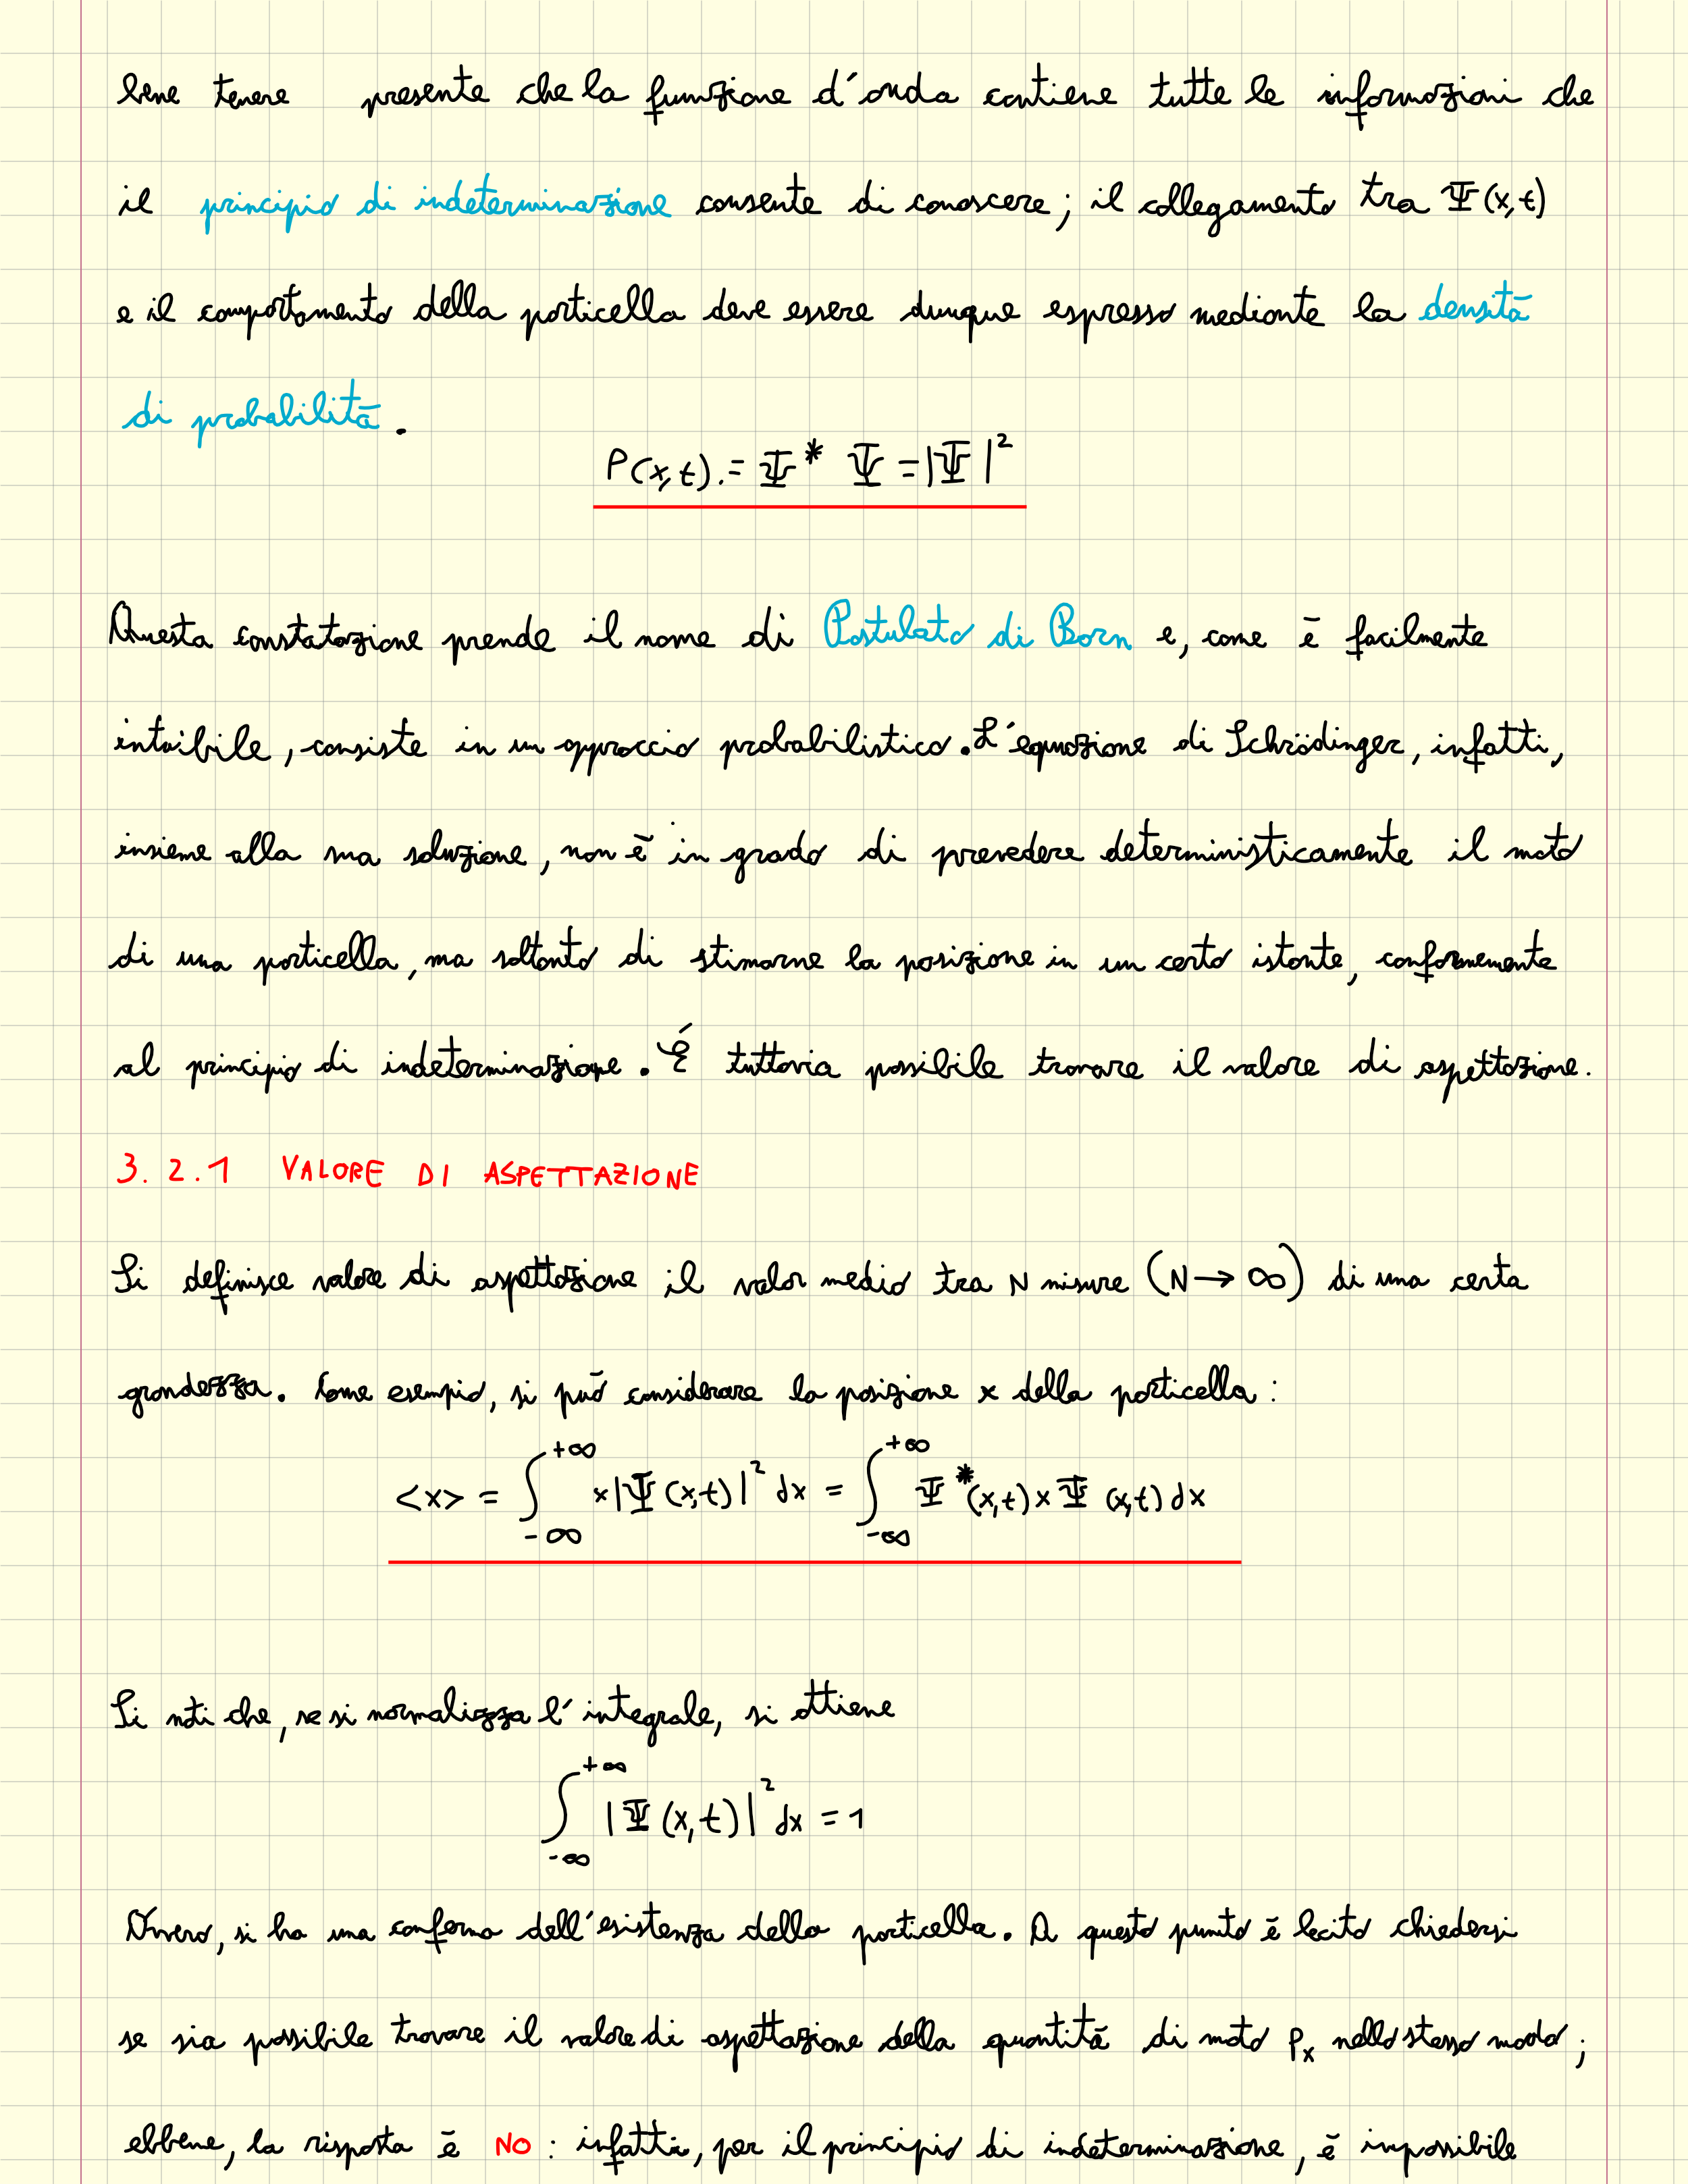 bene tenere presente che la funzione d'onda contiene tutte le informazioni che
il principio di indeterminazione consente di conoscere; il collegamento tra Ψ(x,t)
e il comportamento della particella deve essere dunque espresso mediante la densità
di probabilità.
P(x,t).= Ψ* Ψ = |Ψ|²
Questa constatazione prende il nome di Postulato di Born e, come è facilmente
intuibile, consiste in un approccio probabilistico. L'equazione di Schrödinger, infatti,
insieme alla sua soluzione, non è in grado di prevedere deterministicamente il moto
di una particella, ma soltanto di stimarne la posizione in un certo istante, conformemente
al principio di indeterminazione. É tuttavia possibile trovare il valore di aspettazione.
3.2.1 VALORE DI ASPETTAZIONE
Si definisce valore di aspettazione il valor medio tra N misure (N → ∞) di una certa
grandezza. Come esempio, si può considerare la posizione x della particella:
<x> = ∫_{-∞}^{+∞} x|Ψ(x,t)|² dx = ∫_{-∞}^{+∞} Ψ*(x,t) x Ψ (x,t) dx
Si noti che, se si normalizza l'integrale, si ottiene
∫_{-∞}^{+∞} |Ψ(x,t)|² dx = 1
Ovvero, si ha una conferma dell'esistenza della particella. A questo punto è lecito chiedersi
se sia possibile trovare il valore di aspettazione della quantità di moto Pₓ nello stesso modo;
ebbene, la risposta è NO: infatti, per il principio di indeterminazione, è impossibile